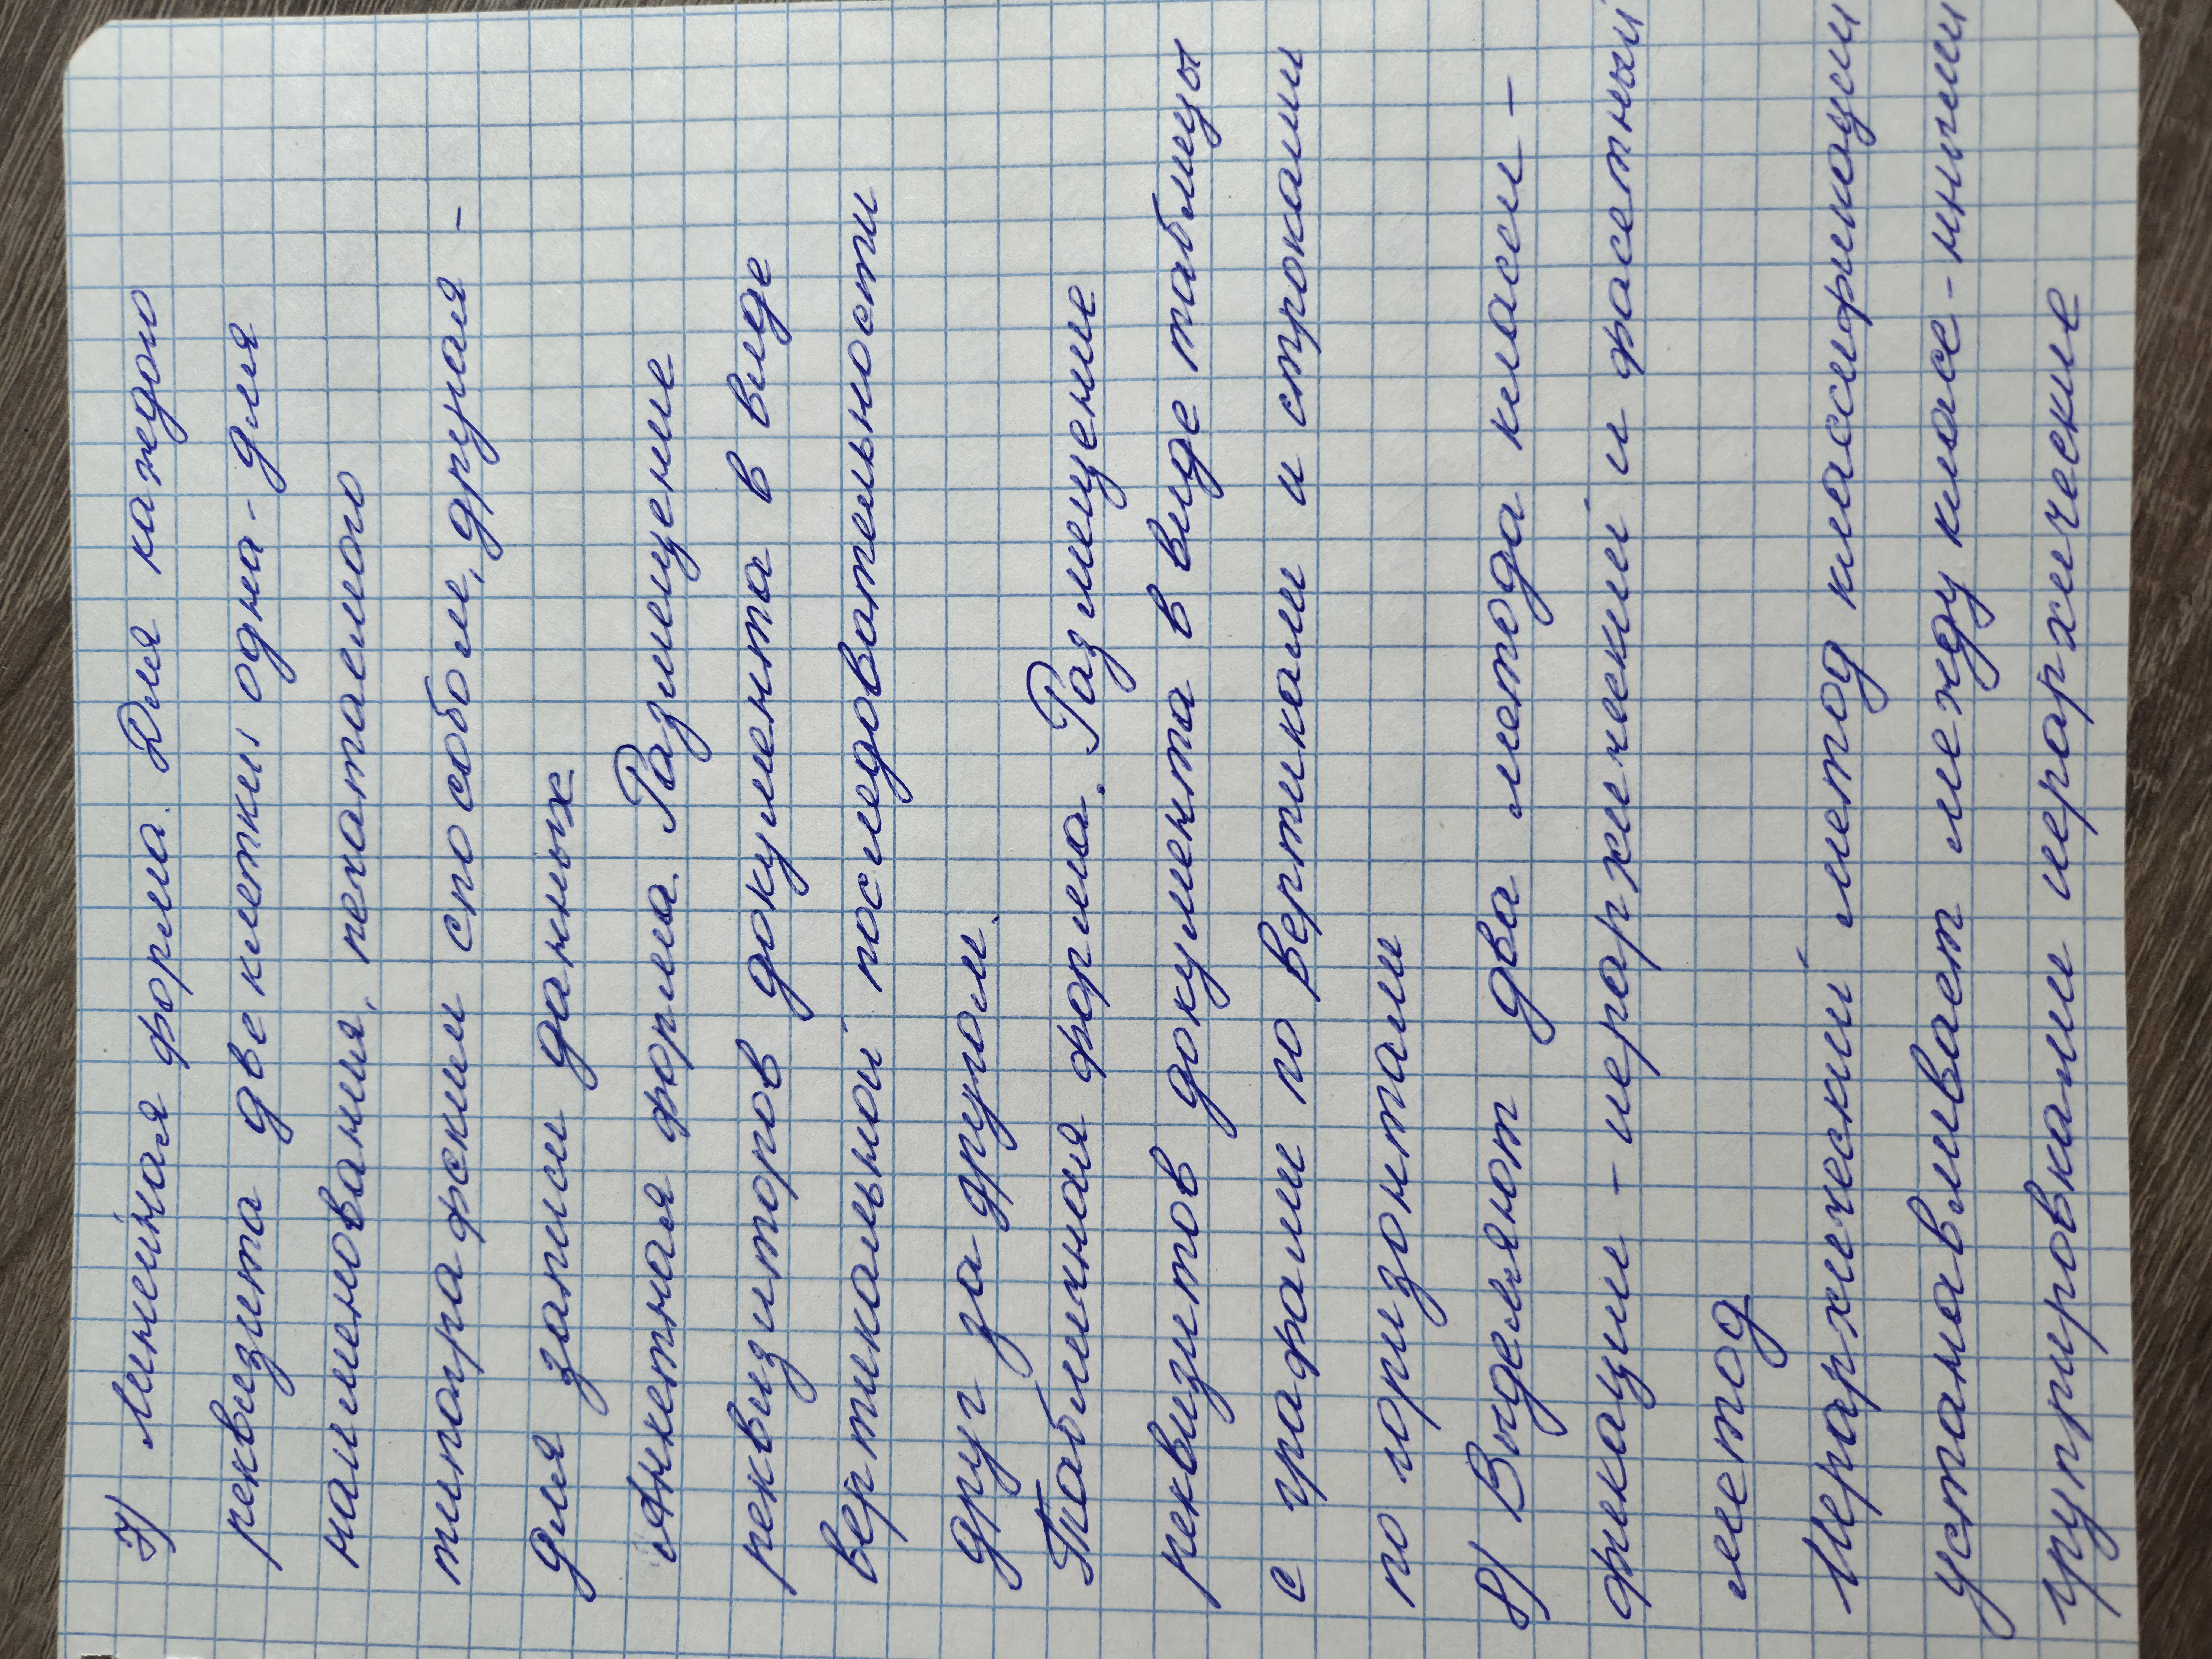 7) Линейная форма. Для каждого
реквизита две клетки одна - для
наименования, печатаемого
типографским способом, другая -
для записи данных
Анкетная форма. Размещение
реквизиторов документа в виде
вертикальной последовательности
друг за другом.
Табличная форма. Размещение
реквизитов документа в виде таблицы
с графами по вертикали и строками
по горизонтали
8) Выделяют два метода класси -
фикации - иерархический и фасетный
метод
Иерархический метод классификации
устанавливает между класс-ними
группировками иерархические